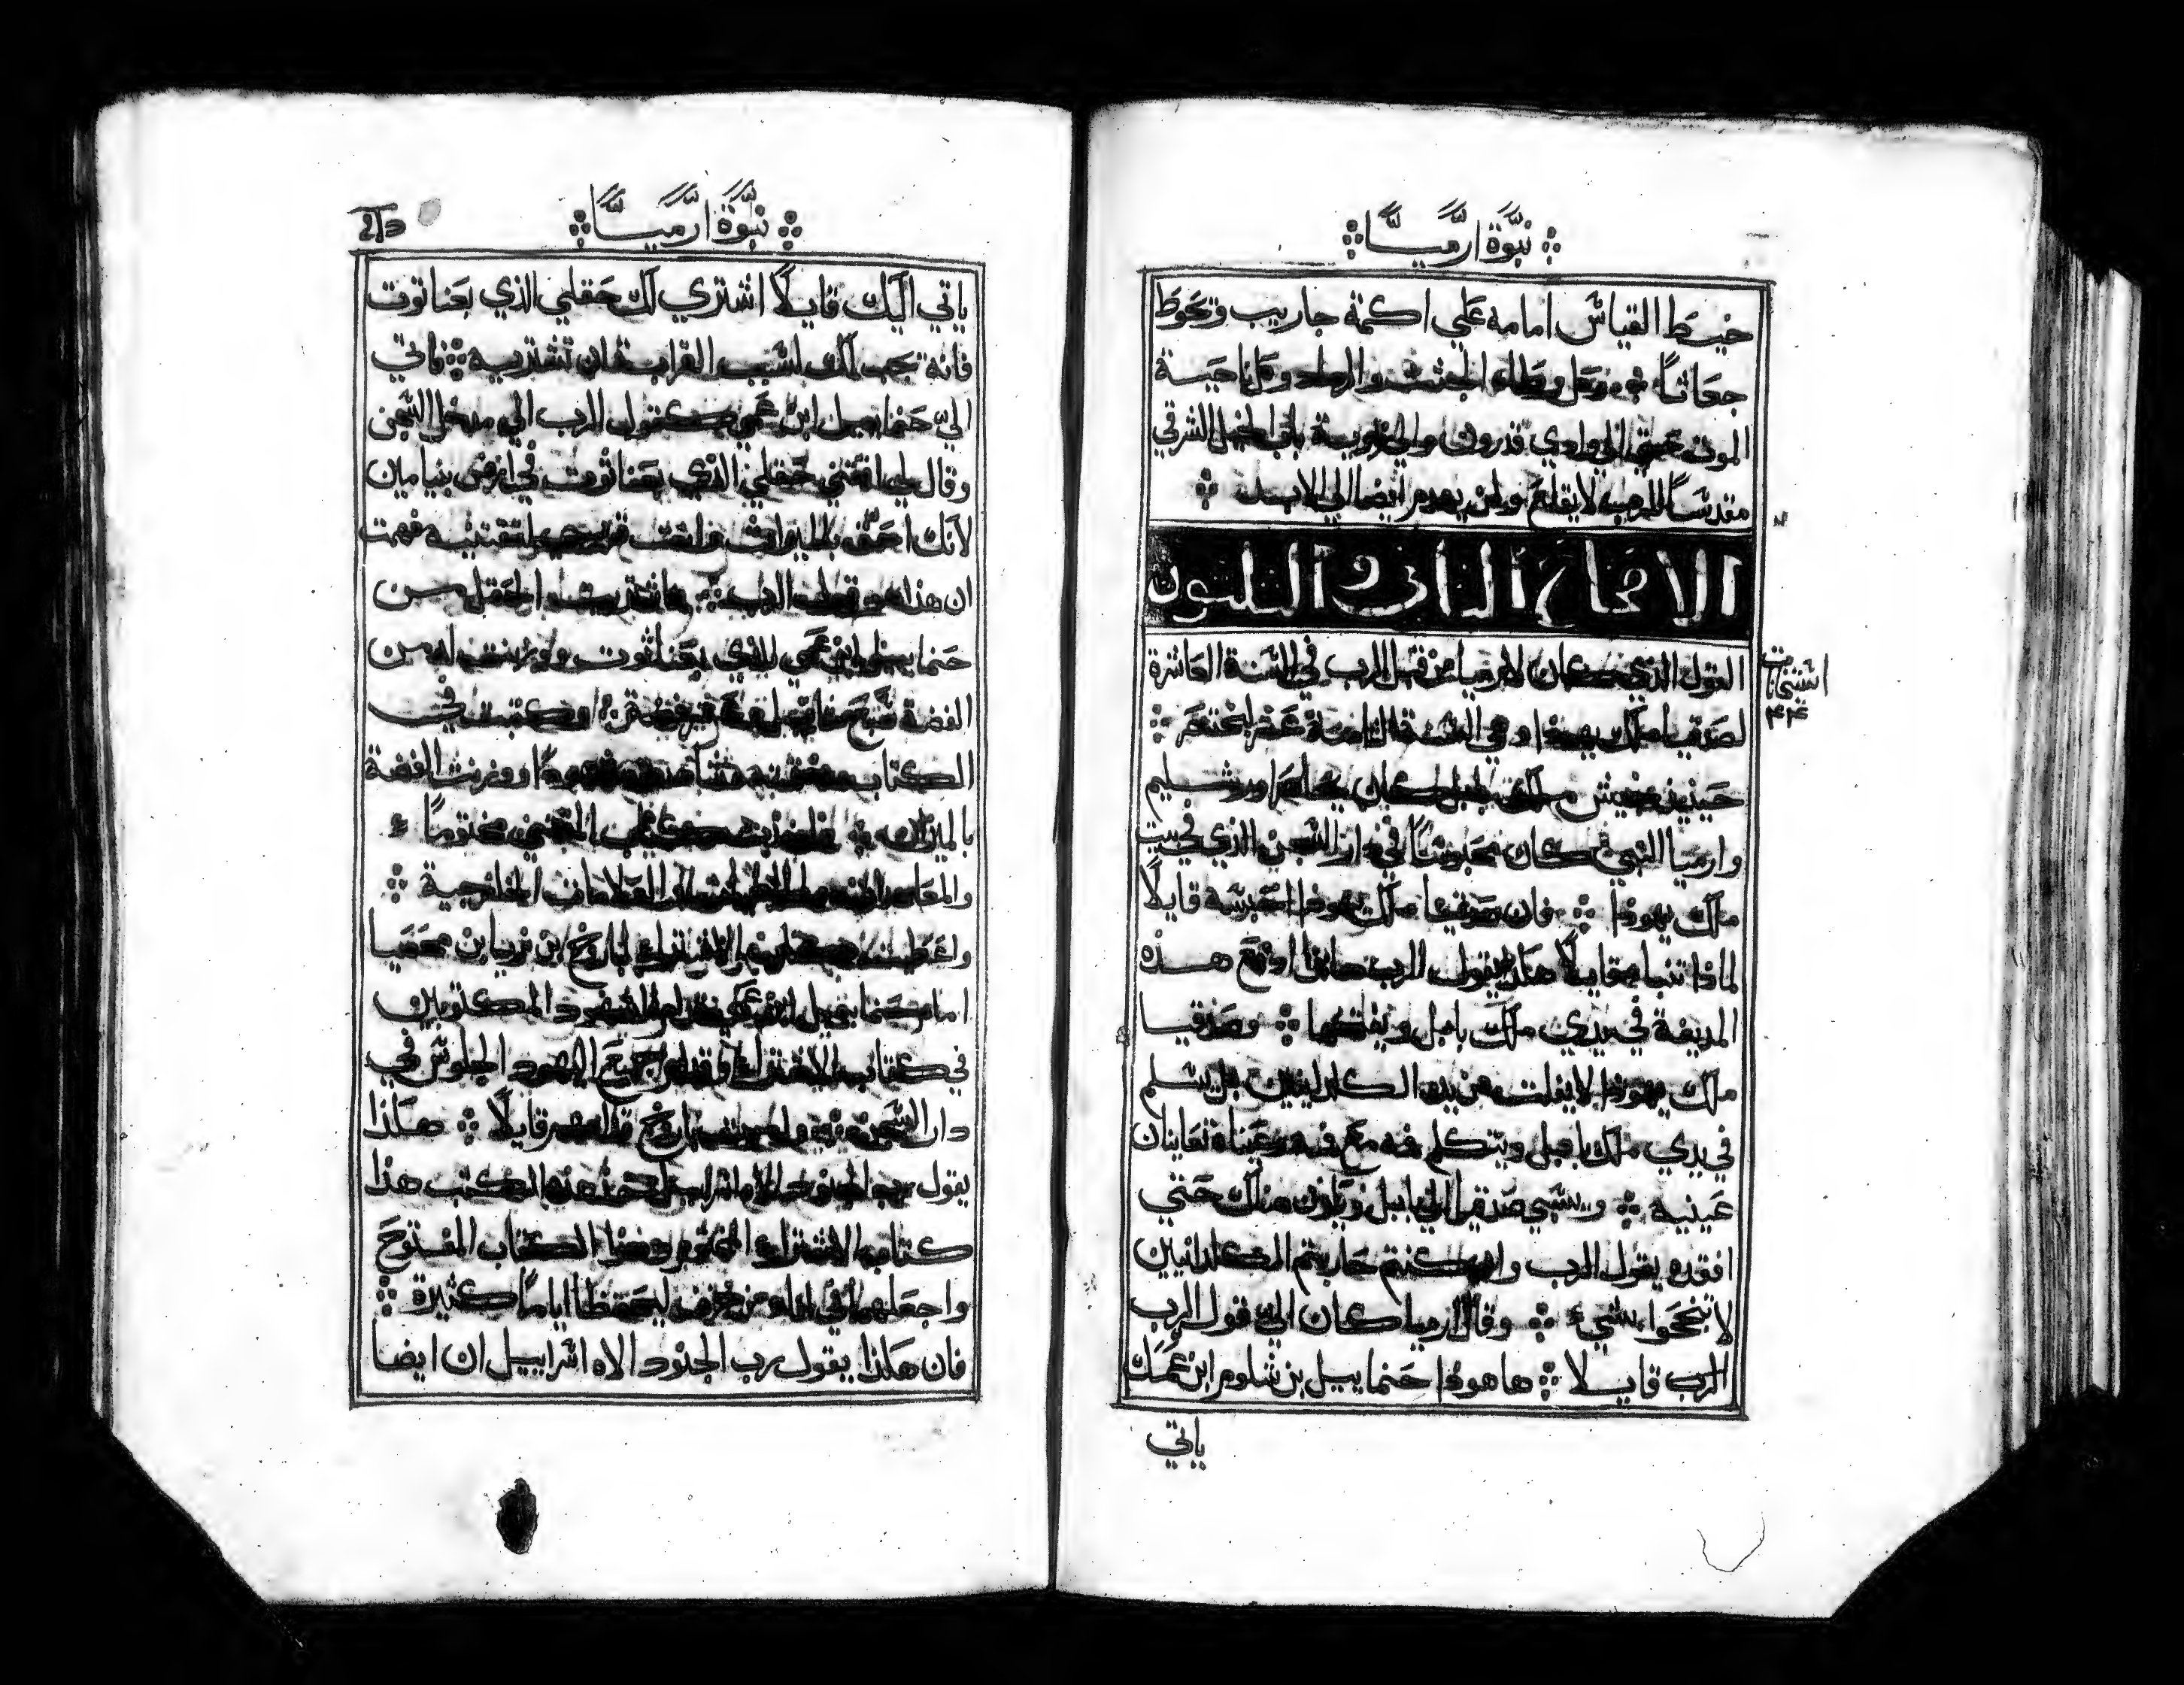 نبوة ارميا
خيط القياس امامه علي اكمة جاريب وتحوط
جعاثا وكل وطاء الجثث والرماد وكل ناحية
الموت حتي الي وادي قدرون والي زوية باب الخيل الشرقي
مقدسا للرب لا يقلع ولن يهدم ايضا الي الابد
الاصحاح الثاني والثلثون
القول الذي كان لارميا من قبل الرب في السنة العاشرة
لصدقيا ملك يهوذا وهي السنة الثامنة عشر لبختنصر
حينيذ جيش ملك بابل كان يحاصر اورشليم
وارميا النبي كان محبوسا في دار السجن الذي في بيت
ملك يهوذا فان صدقيا ملك يهوذا حبسه قايلا
لماذا تنبا قايلا هكذا يقول الرب هانذا ادفع هذه
المدينة في يدي ملك بابل وياخذها وصدقيا
ملك يهوذا لا يفلت من يد الكلدانيين بل يسلم
في يدي ملك بابل ويتكلم فمه مع فمه وعيناه تعاينان
عينيه ويسبي صدقيا الي بابل ويكون هناك حتي
افقده يقول الرب وان كنتم حاربتم الكلدانيين
لا تنجحوا بشيء وقال ارميا كان الي قول الرب
الرب قايلا هاهوذا حنماييل بن شلوم ابن عمك
ياتي
نبوة ارميا
ياتي اليك قايلا اشتري لك حقلي الذي بعناتوت
فانه يجب لك بسبب القرابة ان تشتريه فاتي
الي حنماييل ابن عمي كقول الرب الي مدخل السجن
وقال لي اقتني حقلي الذي بعناثوت في ارض بنيامين
لانك احق بالميراث وانت قريب لتقتنيه ففهمت
ان هذا هو قول الرب فاشتريت الحقل من
حنماييل ابن عمي الذي بعناثوت ووزنت له من
الفضة
الكتاب وختمته ووزنت الفضة
بالميزان فاخذت كتاب المقتني مختوما
العلامات الخارجية
واعطيت كتاب الاشتراء لباروخ ابن نريا بن محسيا
امام حنماييل ابن عمي وامام الشهود المكتوبين
في كتاب الاشتراء وقدام جميع اليهود الجلوس في
دار السجن باروخ قدامهم قايلا هكذا
يقول رب الجنود الاه اسراييل خذ هذه الكتب هذا
كتاب الاشتراء المختوم وهذا الكتاب المفتوح
واجعلهما في اناء من خزف ليحفظا اياما كثيرة
فان هكذا يقول رب الجنود الاه اسراييل ان ايضا